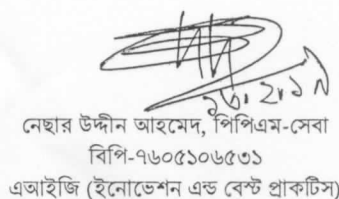 ১৬.২.১৯
নেছার উদ্দীন আহমেদ, পিপিএম-সেবা
বিপি-৭৬০৫১০৬৫৩১
এআইজি (ইনোভেশন এন্ড বেস্ট প্রাকটিস)